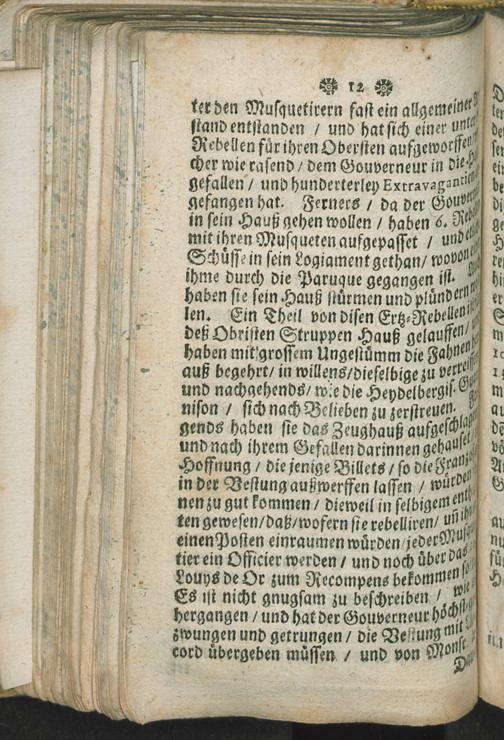 12
ter den Musquetirern fast ein allgemeiner
stand entstanden / und hat sich einer
Rebellen für ihren Obersten aufgeworffen
cher wie rasend / dem Gouverneur in die
gefallen / und hunderterley Extravagantien
gefangen hat. Ferners / da der
in sein Hauß gehen wollen / haben 6.
mit ihren Musqueten aufgepasset / und
Schüsse in sein Logiament gethan / wovon
ihme durch die Paruque gegangen ist.
haben sie sein Hauß stürmen und plündern
len. Ein Theil von disen Ertz-Rebellen
deß Obristen Struppen Hauß gelauffen /
haben mit grossem Ungestümm die Fahnen
auß begehrt / in willens / dieselbige zu
und nachgehends / wie die Heydelbergis.
nison / sich nach Belieben zu zerstreuen.
gends haben sie das Zeughauß
und nach ihrem Gefallen darinnen gehauset
Hoffnung / die jenige Billets / so die
in der Vestung außwerffen lassen / würden
nen zu gut kommen / dieweil in selbigem
ten gewesen / daß / wofern sie rebelliren / uñ
einen Posten einraumen würden / jeder
tier ein Officier werden / und noch über das
Louys de Or zum Recompens bekommen
Es ist nicht gnugsam zu beschreiben / wie
hergangen / und hat der Gouverneur
zwungen und getrungen / die Vestung mit
cord übergeben müssen / und von Mons.